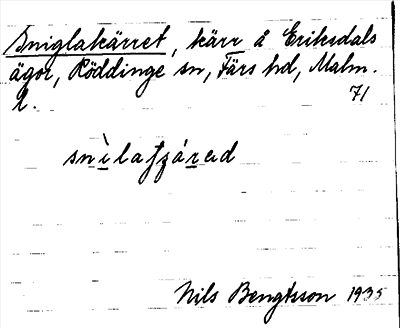 Sniglakärret, kärr å Eriksdals
ägor, Röddinge sn, Färs hd, Malm.
l. 71
Nils Bengtsson 1935